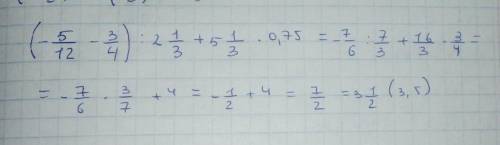 (-5/12 - 3/4) : 2 1/3 + 5 1/3 · 0,75 = -7/6 : 7/3 + 16/3 · 3/4 =
= -7/6 · 3/7 + 4 = -1/2 + 4 = 7/2 = 3 1/2 (3,5)